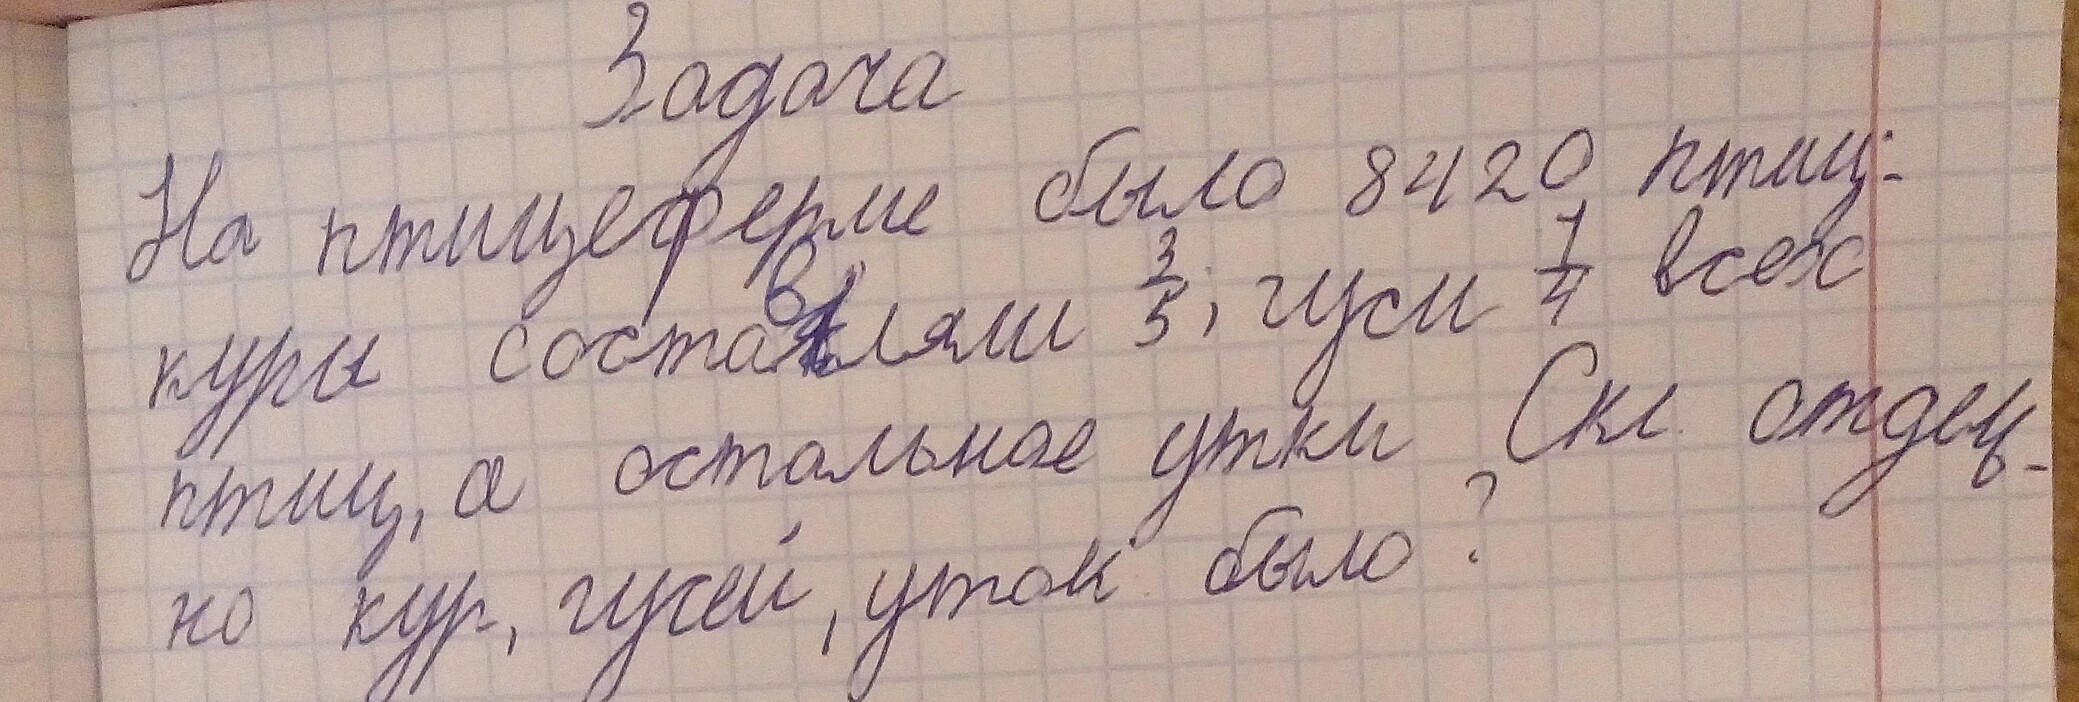 Задача
На птицеферме было 8420 птиц.
куры составляли 3/5, гуси 1/4 всех
птиц, а остальное утки Скл. отдель-
но кур, гусей, уток было?